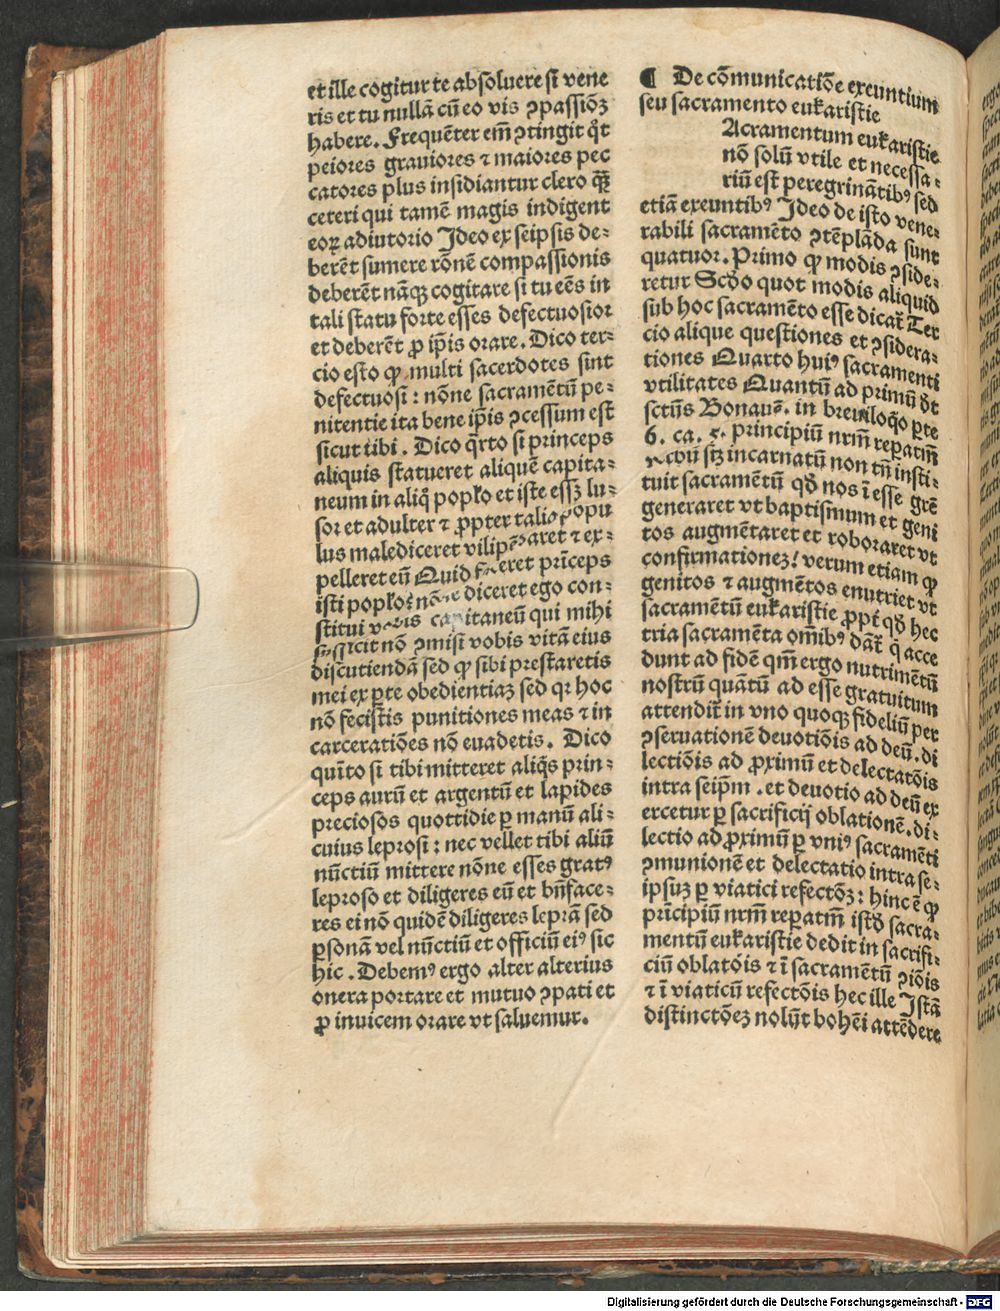 et ille cogitur te absoluere si vene
ris et tu nullā cū eo vis ꝯpassiōꝫ
habere. Frequēter em̄ ꝯtingit q̄t
peiores grauiores ⁊ maiores pec
catores plus insidiantur clero qꝫ̄
ceteri qui tamē magis indigent
eoꝝ adiutorio Ideo ex seipsis de⸗
berēt sumere rōnē compassionis
deberēt nāqꝫ cogitare si tu eēs in
tali statu forte esses defectuosior
et deberēt ꝓ ip̄is orare. Dico ter⸗
cio esto ꝙ multi sacerdotes sint
defectuosi: nōne sacramētū pe⸗
nitentie ita bene ip̄is ꝯcessum est
sicut tibi. Dico q̄rto si princeps
aliquis statueret aliquē capita⸗
neum in aliq̄ popl̄o et iste essꝫ lu⸗
sor et adulter ⁊ ꝓpter talia popu
lus malediceret vilipē⸗aret ⁊ ex⸗
pelleret eū Quid f⸗eret prīceps
isti popl̄o: nōne diceret ego con⸗
stitui vobis capitaneū qui mihi
sufficit nō ꝯmisi vobis vitā eius
discutiendā sed ꝙ sibi prestaretis
mei ex ꝑte obedientiaꝫ sed qꝛ hoc
nō fecistis punitiones meas ⁊ in
carceratiōes nō euadetis. Dico
quīto si tibi mitteret aliq̄s prin⸗
ceps aurū et argentū et lapides
preciosos quottidie ꝑ manū ali⸗
cuius leprosi: nec vellet tibi aliū
nūctiū mittere nōne esses gratꝰ
leproso et diligeres eū et bn̄face⸗
res ei nō quidē diligeres leprā sed
ꝑsonā vel nūctiū et officiū eiꝰ sic
hic. Debemꝰ ergo alter alterius
onera portare et mutuo ꝯpati et
ꝓ inuicem orare vt saluemur.
¶ De cōmunicatiōe exeuntium
seu sacramento eukaristie
Acramentum eukaristie
nō solū vtile et necessa⸗
riū est peregrinātibꝰ sed
etiā exeuntibꝰ Ideo de isto vene⸗
rabili sacramēto ꝯtēplāda sunt
quatuor. Primo ꝙ modis ꝯside⸗
retur Scd̄o quot modis aliquid
sub hoc sacramēto esse dicat᷑ Ter
cio alique questiones et ꝯsidera⸗
tiones Quarto huiꝰ sacramenti
vtilitates Quantū ad primū d̄t
sctūs Bonauē. in breuiloq̄o ꝑte
6. ca. 5. principiū nrm̄ reꝑatm̄
vcbū sꝫ incarnatū non tm̄ insti⸗
tuit sacramētū qd̄ nos ī esse grē
generaret vt baptismum et geni
tos augmētaret et roboraret vt
confirmationeꝫ! verum etiam ꝙ
genitos ⁊ augmētos enutriet vt
sacramētū eukaristie ꝓpt̄ qd̄ hec
tria sacramēta om̄ibꝰ dāt᷑ q̄ acce
dunt ad fidē qm̄ ergo nutrimētū
nostrū quātū ad esse gratuitum
attendit᷑ in vno quoqꝫ fideliū per
ꝯseruationē deuotiōis ad deū. di
lectiōis ad ꝓximū et delectatōis
intra seip̄m. et deuotio ad deū ex
ercetur ꝑ sacrificij oblationē. di⸗
lectio ad ꝓximū ꝑ vniꝰ sacramēti
ꝯmunionē et delectatio intra se⸗
ipsuꝫ ꝑ viatici refectōꝫ: hinc ē ꝙ
prīcipiū nrm̄ reꝑatm̄ istd̄ sacra⸗
mentū eukaristie dedit in sacrifi⸗
ciū oblatōis ⁊ ī sacramētū ꝯiōis
⁊ ī viaticū refectōis hec ille Istā
distinctōeꝫ nolūt bohēi attēdere
Digitalisierung gefördert durch die Deutsche Forschungsgemeinschaft - DFG